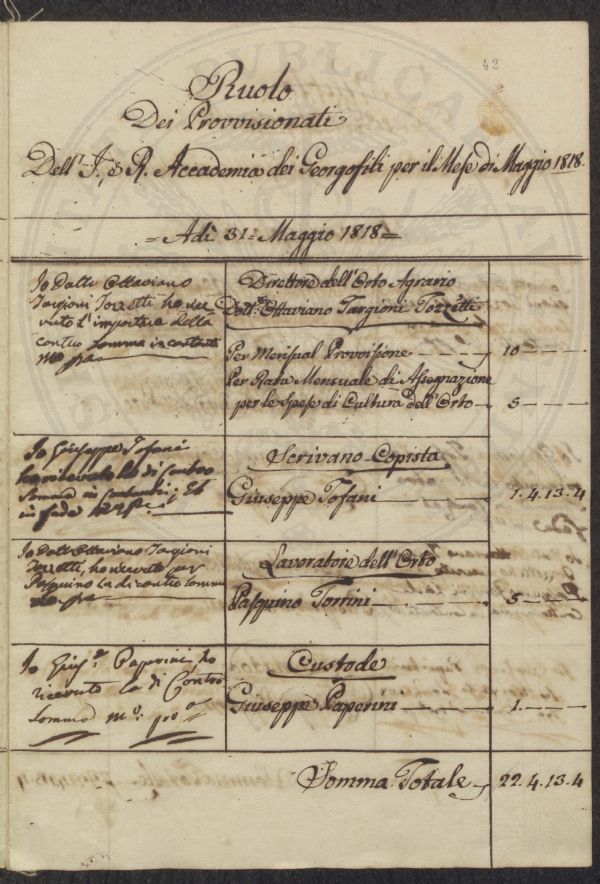 42
Ruolo
Dei Provvisionati
Dell' I. e R. Accademia dei Georgofili per il Mese di Maggio 1818.
= Adì 31= Maggio 1818 =
Io Dottr Ottaviano
Targioni Tozzetti ho rice-
vuto l'importare della
contro somma in contanti
mo ppa
Direttore dell'Orto Agrario
Dottr. Ottaviano Targioni Tozzetti
Per Mensual Provvisione — 10 — — —
Per Rata Mensuale di Assegnazione
per le spese di Cultura dell'Orto — 5 — — —
Io Giuseppe Tofani
ho ricevuto la di contro
Somma in Contanti; Ed
in fede mo ppa
Scrivano Copista
Giuseppe Tofani — 1. 4. 13. 4
Io Dottr Ottaviano Targioni
Tozzetti, ho ricevuto per
Pasquino la di contro somma
mo ppa
Lavoratore dell'Orto
Pasquino Torrini — 5 — — —
Io Giuse. Paperini ho
ricevuto la di Contro
Somma mo: pro a
Custode
Giuseppe Paperini — 1. — — —
Somma Totale — 22. 4. 13. 4